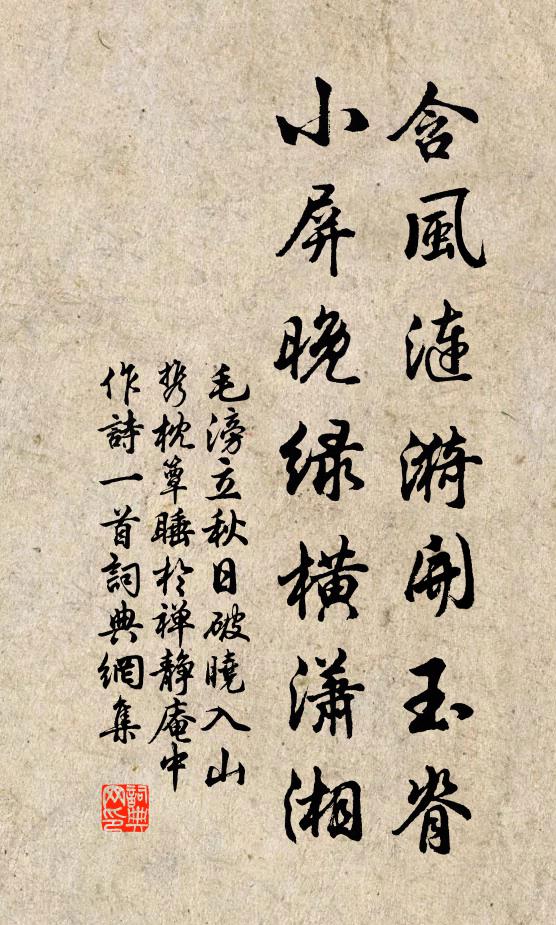 含風漣漪開玉脊
小屏晚绿橫瀟湘
毛滂立秋日破曉入山
携枕簟睡於禅靜庵中
作詩一首詞典網集
詞典网印